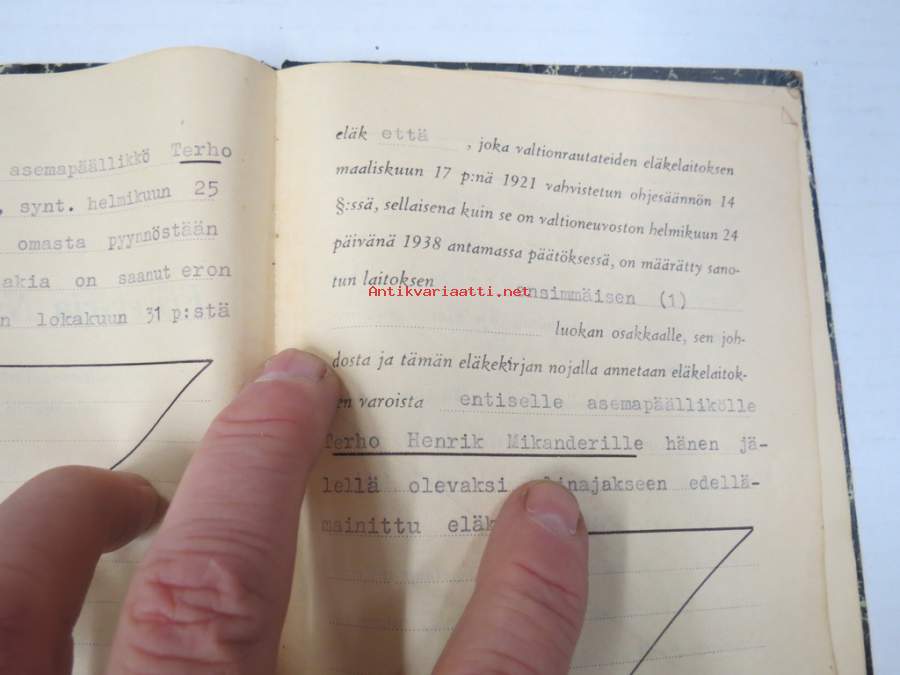 asemapäällikkö Terho
, synt. helmikuun 25
omasta pyynnöstään
akia on saanut eron
n lokakuun 31 p:stä
eläk että , joka valtionrautateiden eläkelaitoksen
maaliskuun 17 p:nä 1921 vahvistetun ohjesäännön 14
§:ssä, sellaisena kuin se on valtioneuvoston helmikuun 24
päivänä 1938 antamassa päätöksessä, on määrätty sano-
tun laitoksen ensimmäisen (1)
Antikvariaatti.net
luokan osakkaalle, sen joh-
dosta ja tämän eläkekirjan nojalla annetaan eläkelaitok-
en varoista entiselle asemapäällikölle
Terho Henrik Mikanderille hänen jä-
lellä olevaksi elinajakseen edellä-
mainittu eläk